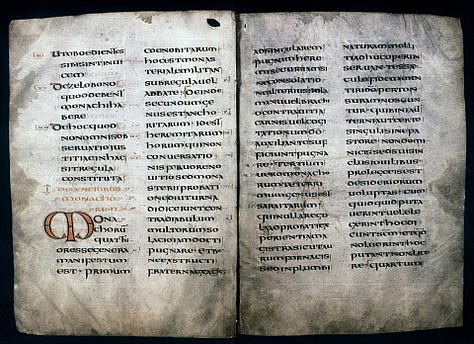 UT OBOEDIENTES
SIBI SINT INUI
CEM
DE ZELO BONO
QUOD DEBENT
MONACHI HA
BERE
DE HOC QUOD
NON OMNIS OB
SERUATIO IUS
TITIAE IN HAC
SIT REGULA
CONSTITUTA
DE GENERIBUS
MONACHO
RUM
MONA
CHORU
QUATTU
OR ESSE GENERA
MANIFESTUM
EST PRIMUM
COENOBITARUM
HOC EST MONAS
TERIALE MILITAN
SUB REGULA UEL
ABBATE DEINDE
SECUNDUM GE
NUS EST ANACHO
RITARUM ID EST
HEREMITARUM
HORUM QUI NON
CONUERSATIO
NIS FERUORE NO
UITIO SED MONA
STERII PROBATI
ONE DIUTURNA
DIDICERUNT CON
TRA DIABULUM
MULTORUM SO
LACIO IAM DOCTI
PUGNARE ET BE
NE EXTRUCTI
FRATERNA EX ACIE
AD SINGULAREM
PUGNAM HEREMI
SECURI IAM SI
NE CONSOLATIO
NE ALTERIUS SOLA
MANU UEL BRACHI
O CONTRA UITIA
CARNIS UEL COGI
TATIONUM DEO
AUXILIANTE SUF
FICIUNT PUGNA
RE TERTIUM
UERO MONACHO
RUM TETERRI
MUM GENUS EST
SARABAITARUM
QUI NULLA REGU
LA ADPROBATI EX
PERIENTIA MA
GISTRA SICUT AU
RUM FORNACIS
SED IN PLUMBI
NATURA MOLLI
TI ADHUC OPERIB
SERUANTES SAE
CULO FIDEM MEN
TIRI DEO PER TON
SURAM NOSCUN
TUR QUI BINI AUT
TERNI AUT CERTE
SINGULI SINE PA
STORE NON DOMI
NICIS SED SUIS IN
CLUSI OUILIBUS
PRO LEGE EIS EST
DESIDERIORUM
UOLUPTAS CUM
QUICQUID PUTA
UERINT UEL ELE
GERINT HOC DI
CUNT SCM ET QUOD
NOLUERINT HOC
PUTANT NON LICE
RE QUARTUM